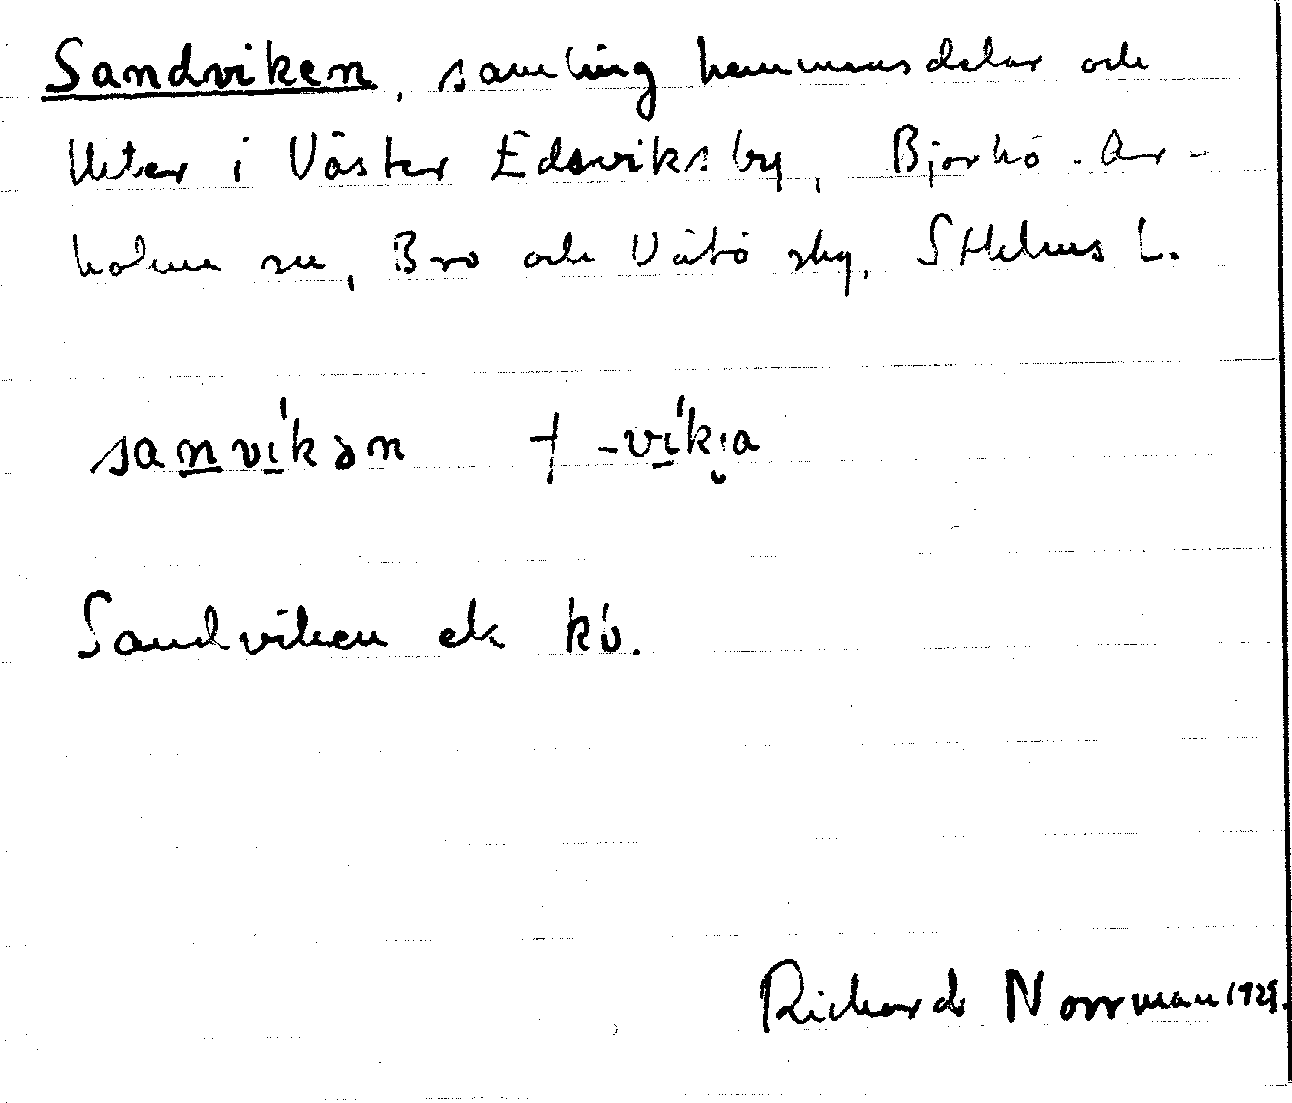 Sandviken, samling hemmansdelar och
lht:er i Väster Edsviks by, Björkö-Ar-
holma sn, Bro och Vätö skg, Sthlms L.
sanvíkən † -víkɪa
Sandviken ek kb.
Richard Norrman 1929.